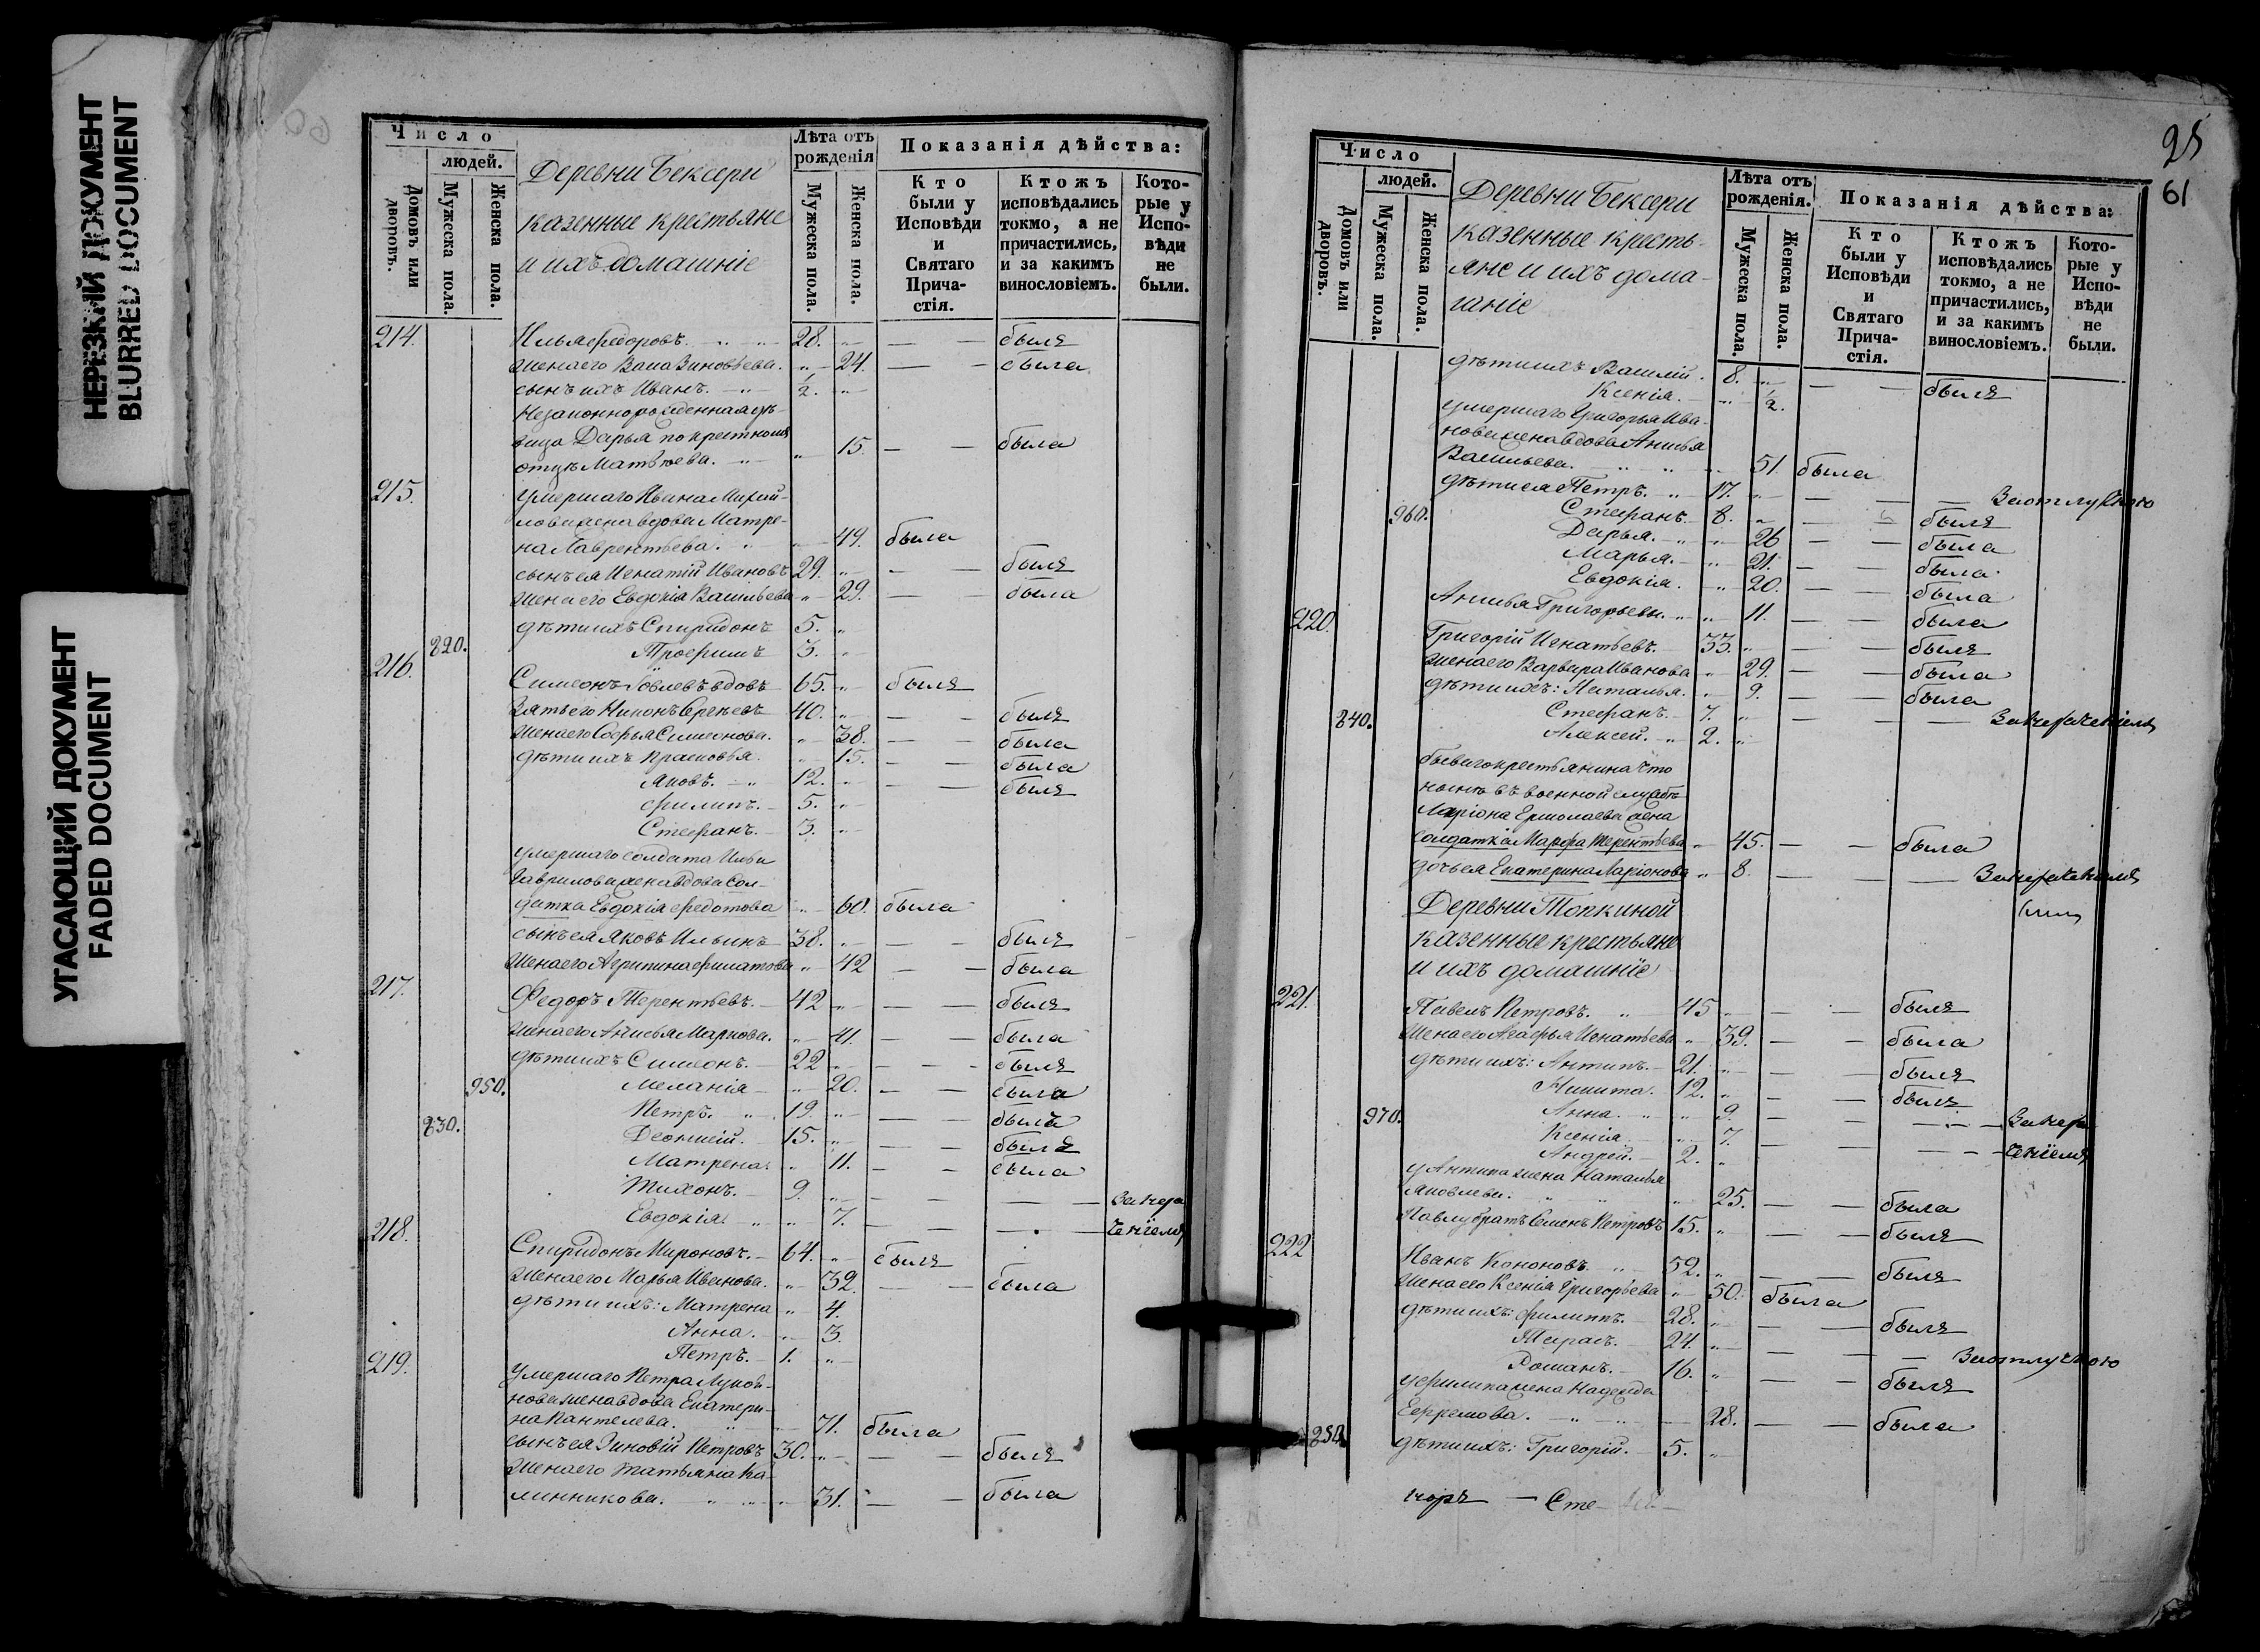 НЕРЕЗКИЙ ДОКУМЕНТ
BLURRED DOCUMENT
УГАСАЮЩИЙ ДОКУМЕНТ
FADED DOCUMENT
Число
людей.
Домовъ или дворовъ.
Мужеска пола.
Женска пола.
Деревни Бексери
казенные крестьяне
и ихъ домашніе
Лѣта отъ рожденія
Мужеска пола.
Женска пола.
Показанія дѣйства:
Кто были у Исповѣди и Святаго Прича-стія.
Ктожъ исповѣдались токмо, а не причастились, и за какимъ винословіемъ.
Кото-рые у Испо-вѣди не были.
214. Илья Федоровъ. 28. былъ
жена его Васа Зиновьева. 24. была
сынъ ихъ Иванъ. 1/2.
Незаконнорожденная дѣ-
вица Дарья по крестному
отцу Матвѣева. 15. была
215. Умершаго Ивана Михай-
лова жена вдова Матре-
на Лаврентьева. 49. была
сынъ ея Игнатій Ивановъ 29. былъ
жена его Евдокія Васильева 29. была
дѣти ихъ Спиридонъ 5.
820. Трофимъ 3.
216. Симеонъ вдовъ 65. былъ
Зять его Никонъ Сергѣевъ 40. былъ
жена его Софья Симеонова. 38. была
дѣти ихъ Прасковья 15. была
Яковъ. 12. былъ
Филипъ. 5.
Стефанъ. 3.
умершаго солдата Ильи
Гаврилова жена вдова Сол-
датка Евдокія Федотова 60. была
сынъ ея Яковъ Ильинъ 38. былъ
жена его Агрипина Филатова 42 была
217. Федоръ Терентьевъ. 42 былъ
жена его Анисья Маркова. 41. была
дѣти ихъ Симеонъ. 22 былъ
950. Меланія 20. была
Петръ. 19. былъ
830. Деонисій. 15. былъ
Матрена. 11. была
Тихонъ. 9. За нера
Евдокія. 7. ченіемъ
218. Спиридонъ Мироновъ. 64. былъ
жена его Марья Иванова. 39. была
дѣти ихъ: Матрена 4.
Анна. 3.
Петръ. 1.
219. Умершаго Петра
нова жена вдова Екатери-
на Пантелева. 71. была
сынъ ея Зиновій Петровъ 30. былъ
жена его Татьяна Ка-
линникова. 31. была
25
61
Число
людей.
Домовъ или дворовъ.
Мужеска пола.
Женска пола.
Деревни Бексери
казенные кресть-
яне и ихъ дома-
шніе
Лѣта отъ рожденія.
Мужеска пола.
Женска пола.
Показанія дѣйства:
Кто были у Исповѣди и Святаго Прича-стія.
Ктожъ исповѣдались токмо, а не причастились, и за какимъ винословіемъ.
Кото-рые у Испо-вѣди не были.
дѣти ихъ Василій. 8. былъ
Ксенія. 1/2.
умершаго Григорья Ива-
нова жена вдова Анисья
Васильева. 51. была
дѣти ея Петръ. 17. За отлучкою
960. Стефанъ. 8. былъ
Дарья. 26 была
Марья. 21. была
Евдокія. 20. была
Анисья Григорьевы. 11. была
220. Григорій Игнатьевъ. 33. былъ
жена его Варвара Иванова 29. была
дѣти ихъ: Наталья. 9. была
840. Стефанъ. 7. За нераченіемъ
Алексей. 2.
бывшаго крестьянина что
нынѣ въ военной службѣ
Ларіона Ермолаева жена
солдатка Марфа Терентьева 45. была
дочь ея Екатерина Ларіонова 8. За нераченіемъ
Деревни Топкиной
казенные крестьяне
и ихъ домашніе
221. Павелъ Петровъ. 45 былъ
жена его Агафья Игнатьева 39. была
дѣти ихъ: Антипъ. 21. былъ
Никита. 12. былъ
970. Анна. 9. За нера
Ксенія 7. ченіемъ
Андрей. 2.
у Антипа жена Наталья
Яковлева. 25. была
Павлу братъ Семенъ Петровъ 15. былъ
222 Иванъ Кононовъ. 52. былъ
жена его Ксенія Григорьева 50. была
дѣти ихъ: Филиппъ. 28. былъ
Тарасъ. 24. За отлучкою
Романъ. 16. былъ
у Филипа жена Надежда
Ефремова. 28. была
850. дѣти ихъ: Григорій. 5.